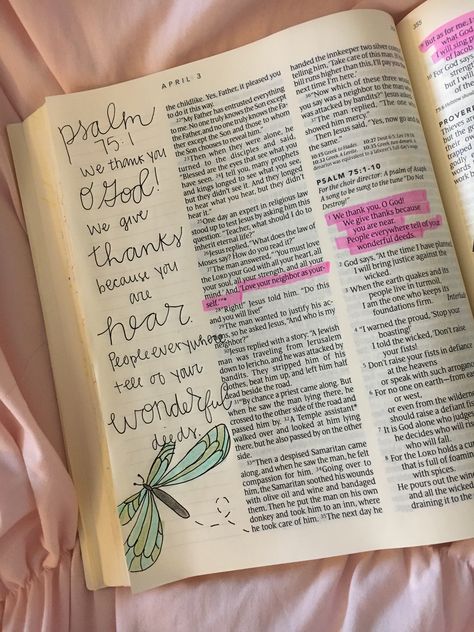 APRIL 3
psalm
75:1
We thank you
O God!
We give
thanks
because you
are
near.
People everywhere
tell of your
wonderful
deeds.
the childlike. Yes, Father, it pleased you
to do it this way.
22"My Father has entrusted everything
to me. No one truly knows the Son except
the Father, and no one truly knows the Fa-
ther except the Son and those to whom
the Son chooses to reveal him."
23Then when they were alone, he
turned to the disciples and said,
"Blessed are the eyes that see what you
have seen. 24I tell you, many prophets
and kings longed to see what you see,
but they didn't see it. And they longed
to hear what you hear, but they didn't
hear it."
25One day an expert in religious law
stood up to test Jesus by asking him this
question: "Teacher, what should I do to
inherit eternal life?"
26Jesus replied, "What does the law of
Moses say? How do you read it?"
27The man answered, "'You must love
the LORD your God with all your heart, all
your soul, all your strength, and all your
mind.' And 'Love your neighbor as your-
self.'"*
28"Right!" Jesus told him. "Do this
and you will live!"
29The man wanted to justify his ac-
tions, so he asked Jesus, "And who is my
neighbor?"
30Jesus replied with a story: "A Jewish
man was traveling from Jerusalem
down to Jericho, and he was attacked by
bandits. They stripped him of his
clothes, beat him up, and left him half
dead beside the road.
31"By chance a priest came along. But
when he saw the man lying there, he
crossed to the other side of the road and
passed him by. 32A Temple assistant*
walked over and looked at him lying
there, but he also passed by on the other
side.
33"Then a despised Samaritan came
along, and when he saw the man, he felt
compassion for him. 34Going over to
him, the Samaritan soothed his wounds
with olive oil and wine and bandaged
them. Then he put the man on his own
donkey and took him to an inn, where
he took care of him. 35The next day he
handed the innkeeper two silver coins,*
telling him, 'Take care of this man. If his
bill runs higher than this, I'll pay you the
next time I'm here.'
36"Now which of these three would
you say was a neighbor to the man who
was attacked by bandits?" Jesus asked.
37The man replied, "The one who
showed him mercy."
Then Jesus said, "Yes, now go and do
the same."
PSALM 75:1-10
For the choir director: A psalm of Asaph.
A song to be sung to the tune "Do Not
Destroy!"
1 We thank you, O God!
We give thanks because
you are near.
People everywhere tell of your
wonderful deeds.
2 God says, "At the time I have planned,
I will bring justice against
the wicked.
3 When the earth quakes and its
people live in turmoil,
I am the one who keeps its
foundations firm. Interlude
4 "I warned the proud, 'Stop your
boasting!'
I told the wicked, 'Don't raise
your fists!
5 Don't raise your fists in defiance
at the heavens
or speak with such arrogance.'"
6 For no one on earth—from east
or west,
or even from the wilderness—
should raise a defiant fist.
7 It is God alone who judges;
he decides who will rise
who will fall.
8 For the LORD holds a cup
that is full of foaming
with spices.
He pours out the wine
and all the wicked
draining it to the
355
9 But as for me, I
what God
I will sing p
of Jacob
10 For God says,
PROVE